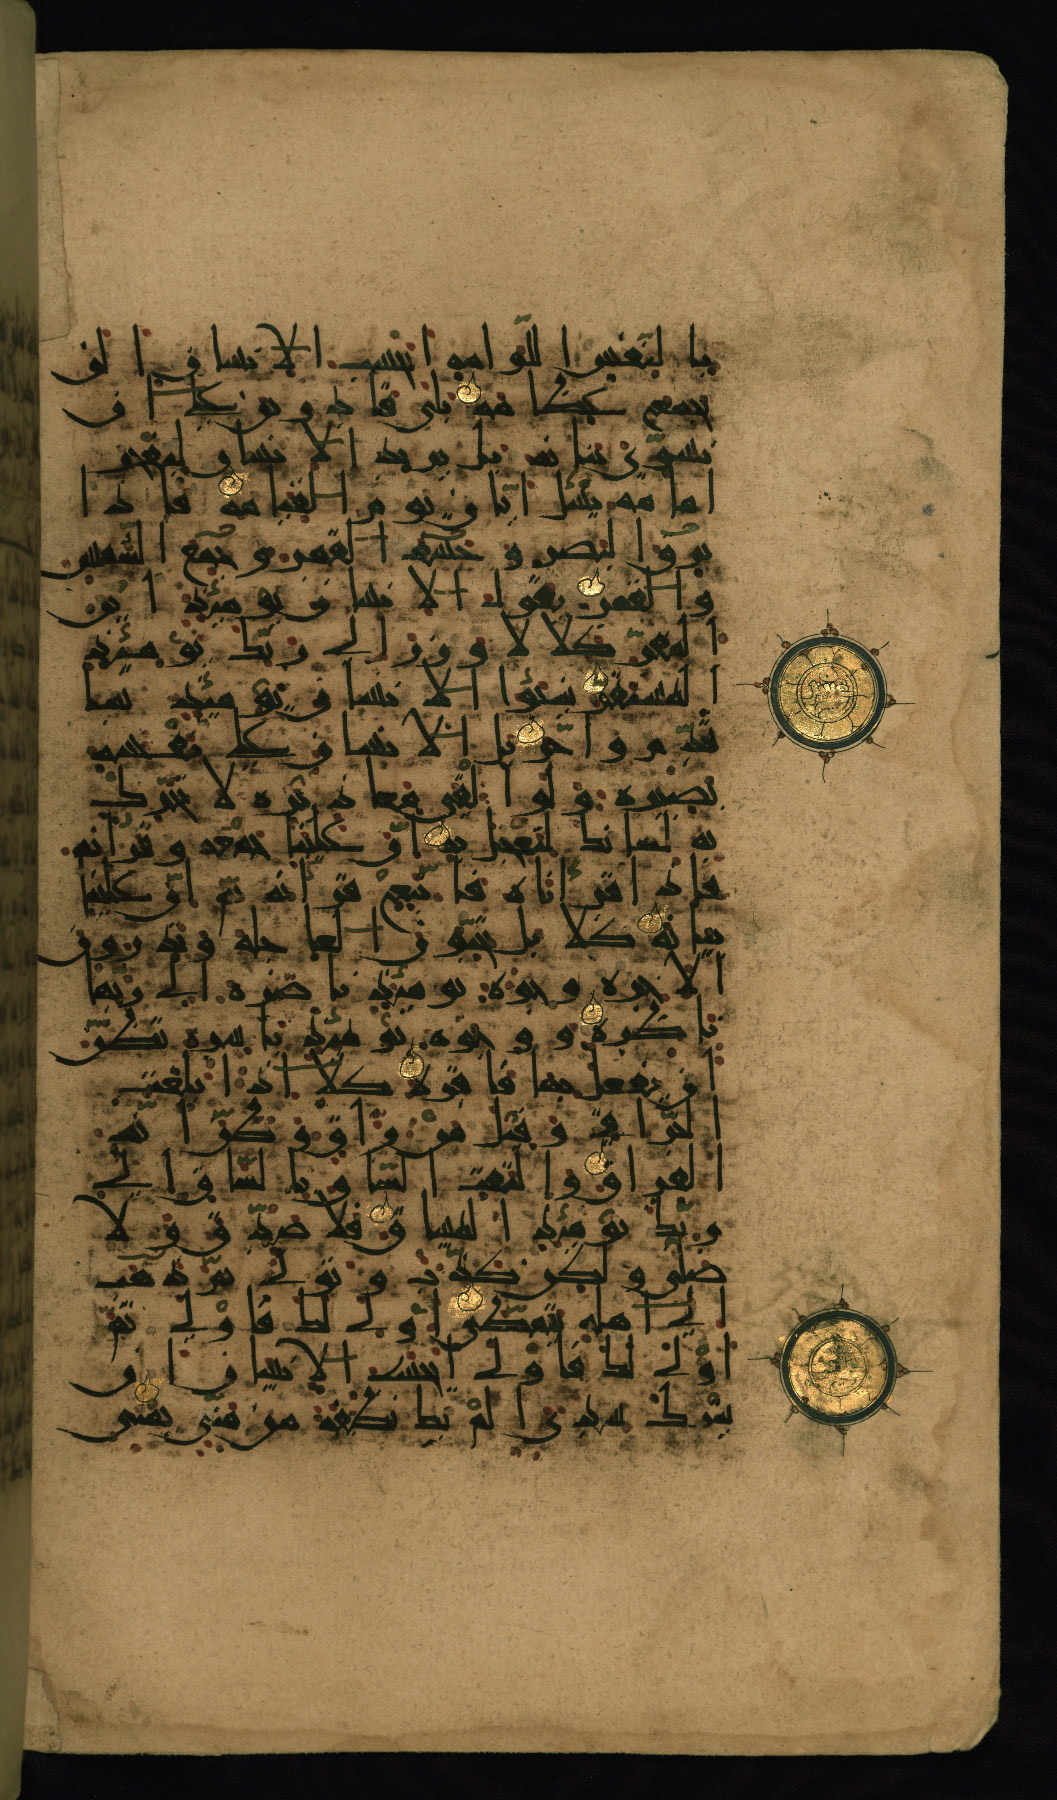 با لنفس ا للو امه ا يحسب ا لا نسا ن ا لن
نجمع عظا مه بلى قا د ر ين على ا ن
نسوى بنا نه بل ير يد ا لا نسا ن ليفجر
ا ما مه يسئل ا يا ن يو م ا لقيا مه فا ذ ا
بر ق ا لبصر و خسف ا لقمر و جمع ا لشمس
و ا لقمر يقول ا لا نسا ن يو مئذ ا ين
ا لمفر كلا لا و ز ر ا لى ر بك يو مئذ
ا لمستقر ينبؤ ا ا لا نسا ن يو مئذ بما
قد م و ا خر بل ا لا نسا ن على نفسه
بصيره و لو ا لقى معا ذ ير ه لا تحرك
به لسا نك لتعجل به ا ن علينا جمعه و قر ا نه
فا ذ ا قر ا نا ه فا تبع قر ا نه ثم ا ن علينا
بيا نه كلا بل تحبو ن ا لعا جله و تذ ر و ن
ا لا خر ه و جو ه يو مئذ نا ضر ه ا لى ر بها
نا ظر ه و و جو ه يو مئذ با سر ه تظن
ا ن يفعل بها فا قر ه كلا ا ذ ا بلغت
ا لتر ا قى و قيل من ر ا ق و ظن ا نه
ا لفر ا ق و ا لتفت ا لسا ق با لسا ق ا لى
ر بك يو مئذ ا لمسا ق فلا صد ق و لا
صلى و لكن كذ ب و تو لى ثم ذ هب
ا لى ا هله يتمطى ا و لى لك فا و لى ثم
ا و لى لك فا و لى ا يحسب ا لا نسا ن ا ن
يتر ك سد ى ا لم يك نطفه من منى يمنى